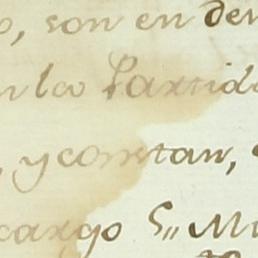 son en
la Partid
y constan,
cargo S,, M